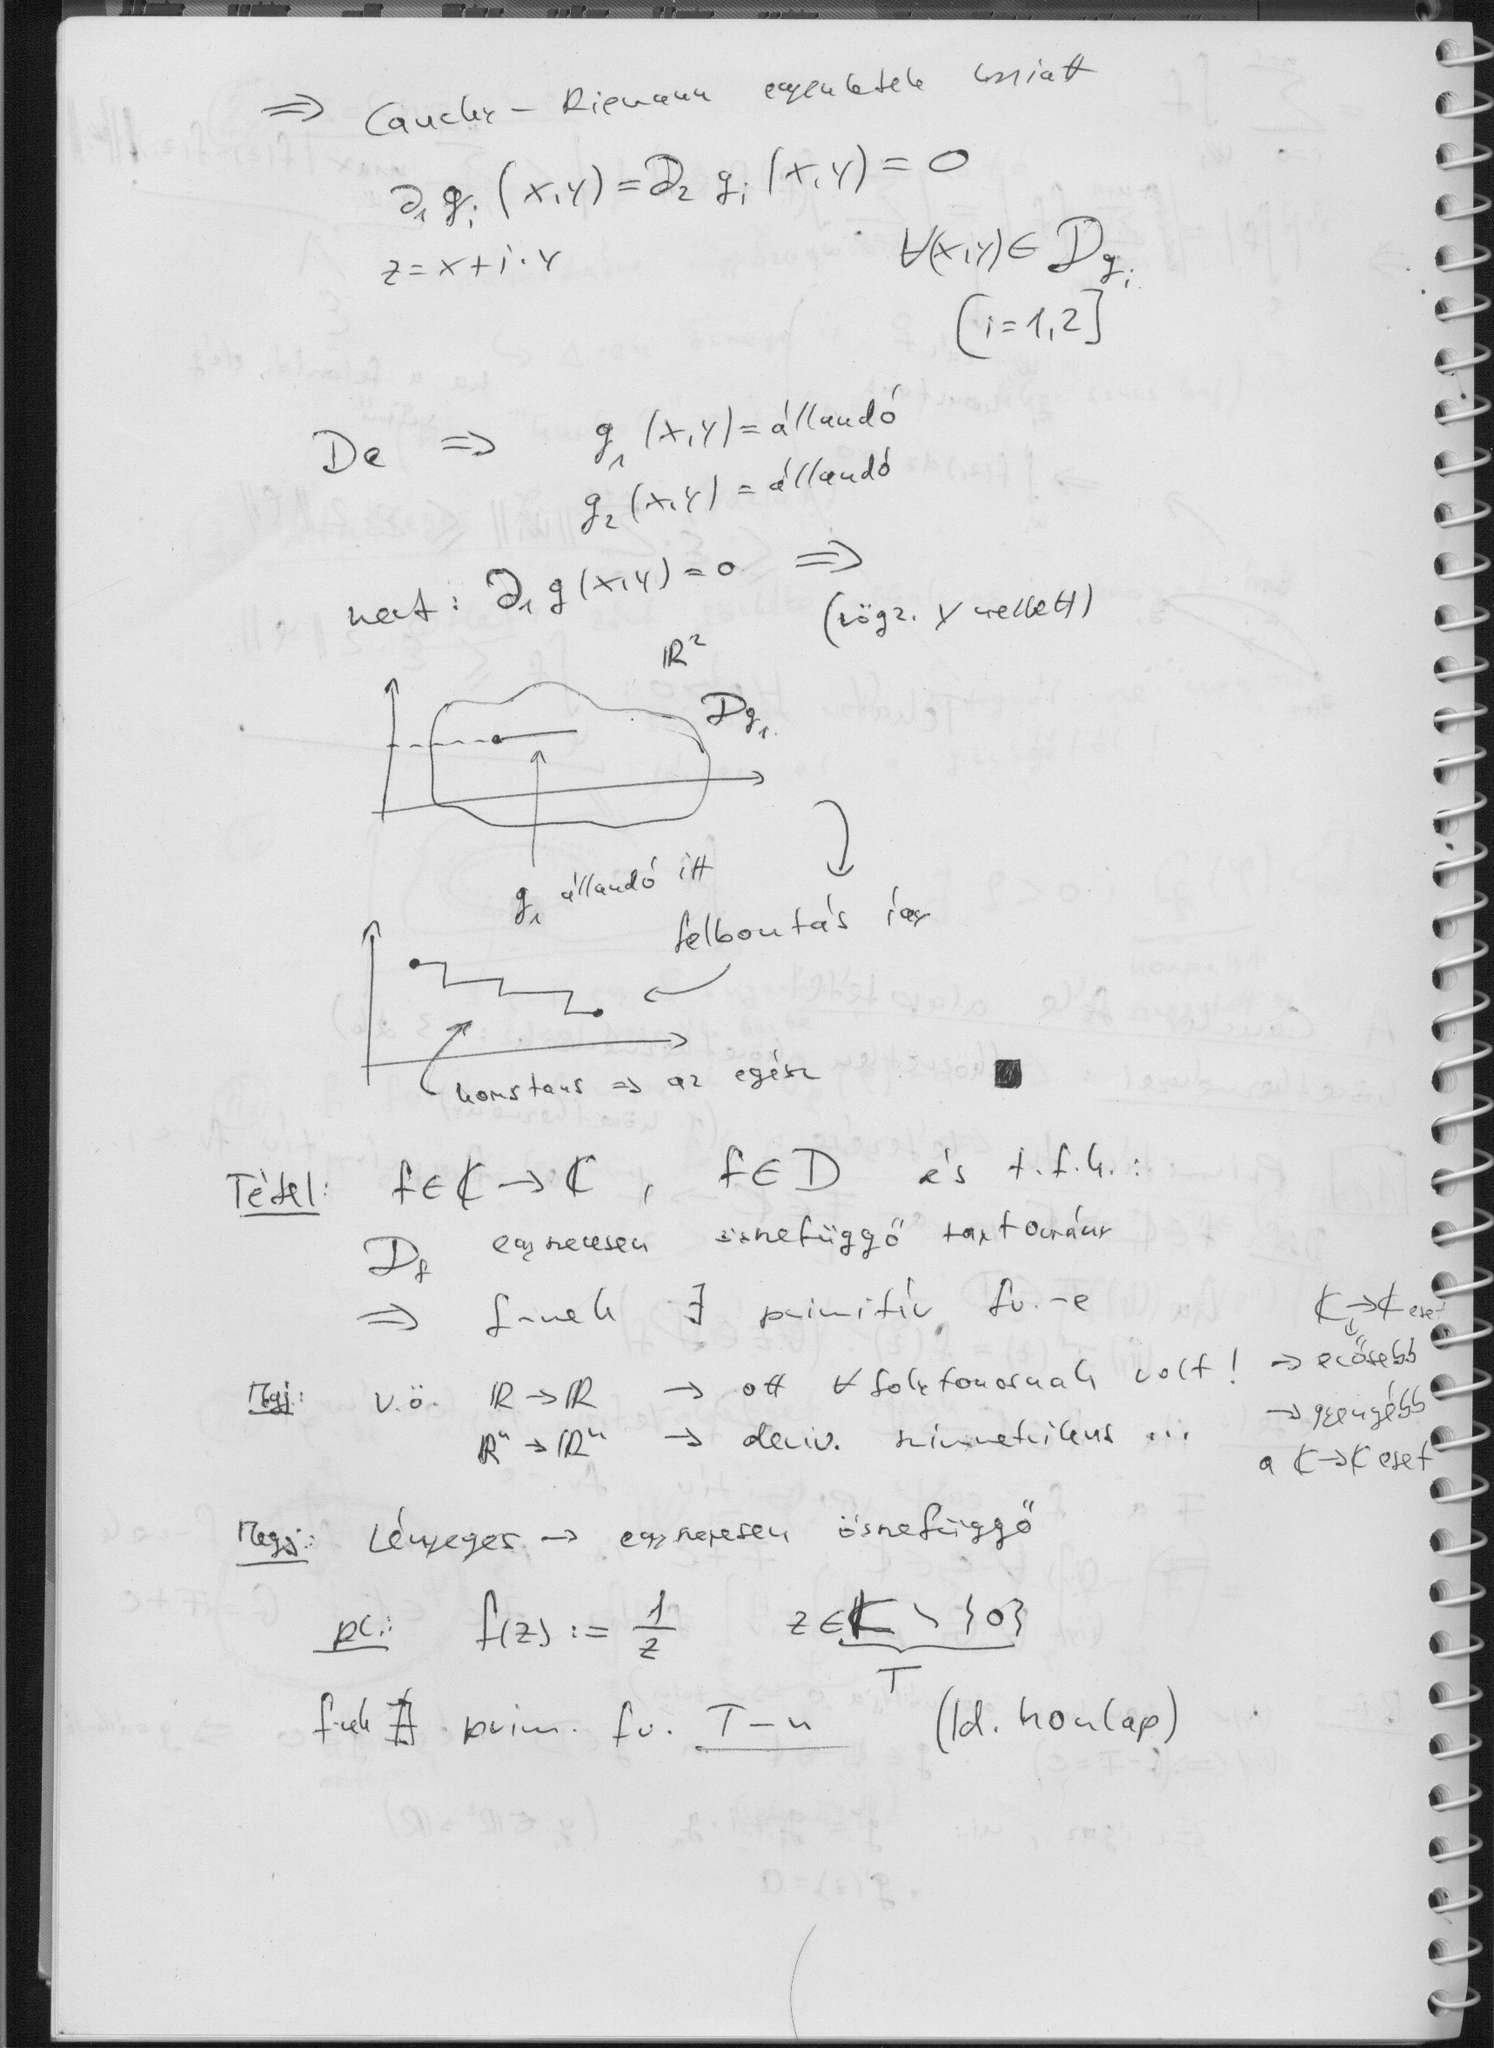 ⇒ Cauchy – Riemann egyenletek miatt
∂₁ gᵢ (x,y) = ∂₂ gᵢ (x,y) = 0
z = x + i·y
∀(x,y) ∈ D_gᵢ
(i = 1,2)
De ⇒ g₁ (x,y) = állandó
g₂ (x,y) = állandó
mert: ∂₁ g(x,y) = 0 ⇒
(rögz. y mellett)
ℝ²
D_g₁
g₁ állandó itt
felbontás így
konstans ⇒ az egész
■
Tétel: f ∈ ℂ → ℂ, f ∈ D és t.f.h.:
D_f egyszeresen összefüggő tartomány
⇒ f-nek ∃ primitív fv.-e
Mgj: v.ö. ℝ → ℝ → ott ∀ folytonosnak volt! → erősebb
ℂ → ℂ eset
ℝⁿ → ℝⁿ → deriv. szimmetrikus ... → gyengébb
a ℂ → ℂ eset
Megj: Lényeges → egyszeresen öszefüggő
pl.: f(z) := 1/z z ∈ ℂ \ {0}
T
f-nek ∄ prim. fv. T-n (ld. honlap)